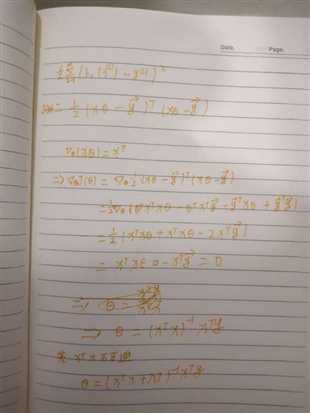 Date. Page.
½ Σ (h(x⁽ⁱ⁾) - y⁽ⁱ⁾)²
= ½ (xθ - y⃗)ᵀ (xθ - y⃗)
∇θ(xθ) = xᵀ
⇒ ∇θJ(θ) = ∇θ ½ (xθ - y⃗)ᵀ (xθ - y⃗)
= ½∇θ (θᵀxᵀxθ - θᵀxᵀy⃗ - y⃗ᵀxθ + y⃗ᵀy⃗)
= ½ (xᵀxθ + xᵀxθ - 2xᵀy⃗)
= xᵀxθ - xᵀy⃗ = 0
⇒ θ =
⇒ θ = (xᵀx)⁻¹xᵀy⃗
xᵀx 不可逆
θ = (xᵀx + λI)⁻¹xᵀy⃗